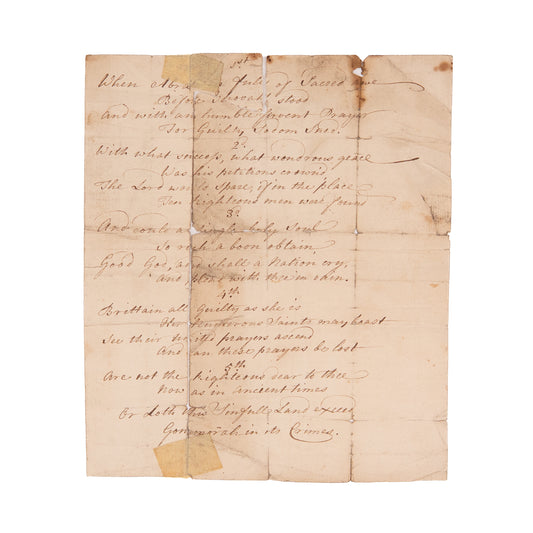 1st
When Abram full of Sacred awe
Before Jehovah stood
And with an humble fervent Prayer
For Guilty Sodom Sued.
2d
With what success, what wondrous grace
Was his petitions crown'd
The Lord would spare, if in the place
Ten Righteous men were found
3d
And could a single holy Soul
So rich a boon obtain
Good God, and shall a Nation cry,
and plead with thee in vain.
4th
Brittain all Guilty as she is
Her numerous Saints may boast
See their prayers ascend
And can these prayers be lost
5th
Are not the Righteous dear to thee
Now as in ancient times
Or doth this Sinfull Land exceed
Gomorrah in its Crimes.